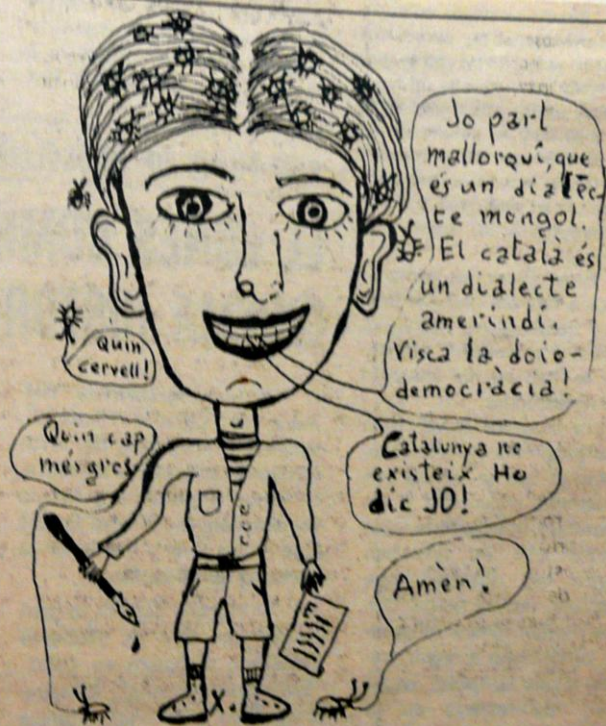 Jo parl
mallorquí, que
és un dialèc-
te mongol.
El català és
un dialecte
amerindi.
Visca la doio-
democràcia!
Quin
cervell!
Quin cap
més gros
Catalunya no
existeix Ho
dic JO!
Amèn!
X.